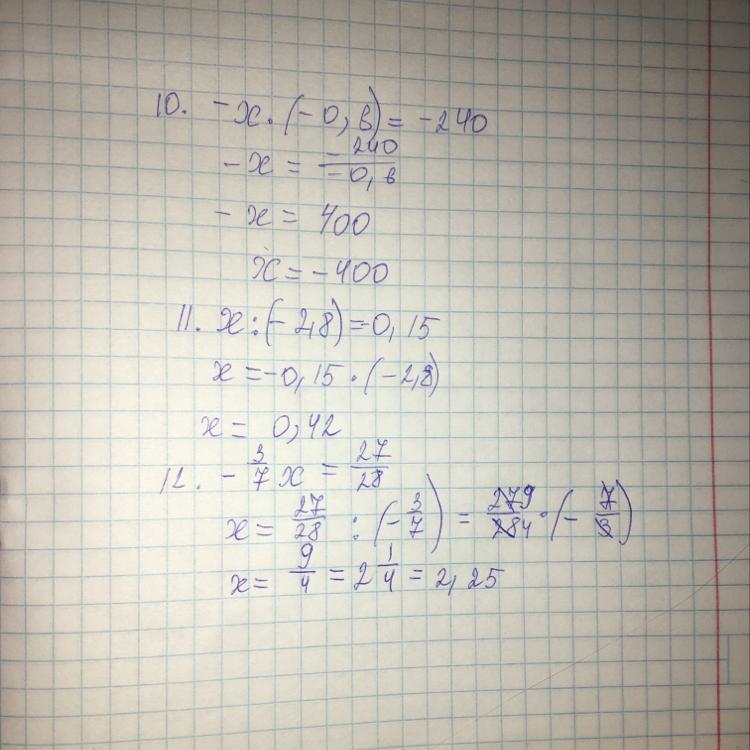 10. -x·(-0,6) = -240
-x = -240/-0,6
-x = 400
x = -400
11. x:(-2,8) = -0,15
x = -0,15·(-2,8)
x = 0,42
12. -3/7 x = 27/28
x = 27/28 : (-3/7) = 27 9/28 4 · (-7/3)
x = 9/4 = 2 1/4 = 2,25